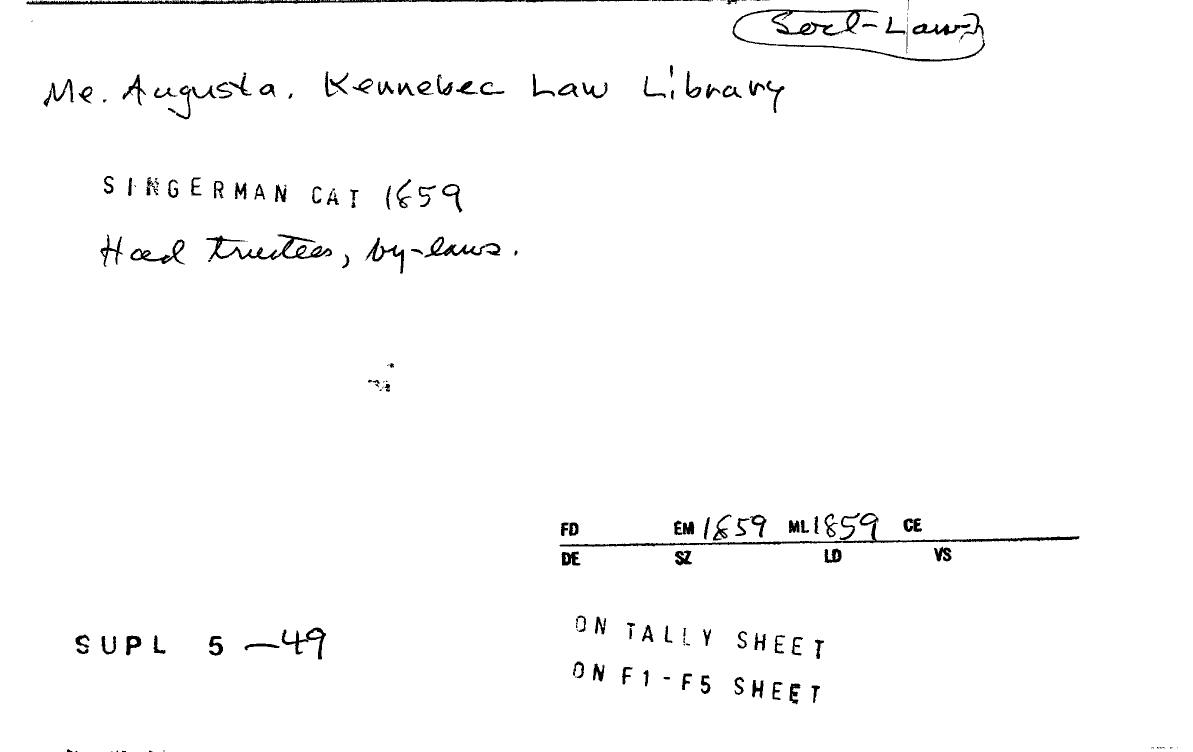 Socl-Law
Me. Augusta. Kennebec Law Library
SINGERMAN CAT 1859
Had trustees, by-laws.
FD EM 1859 ML 1859 CE
DE SZ LD VS
SUPL 5 -49
ON TALLY SHEET
ON F1-F5 SHEET